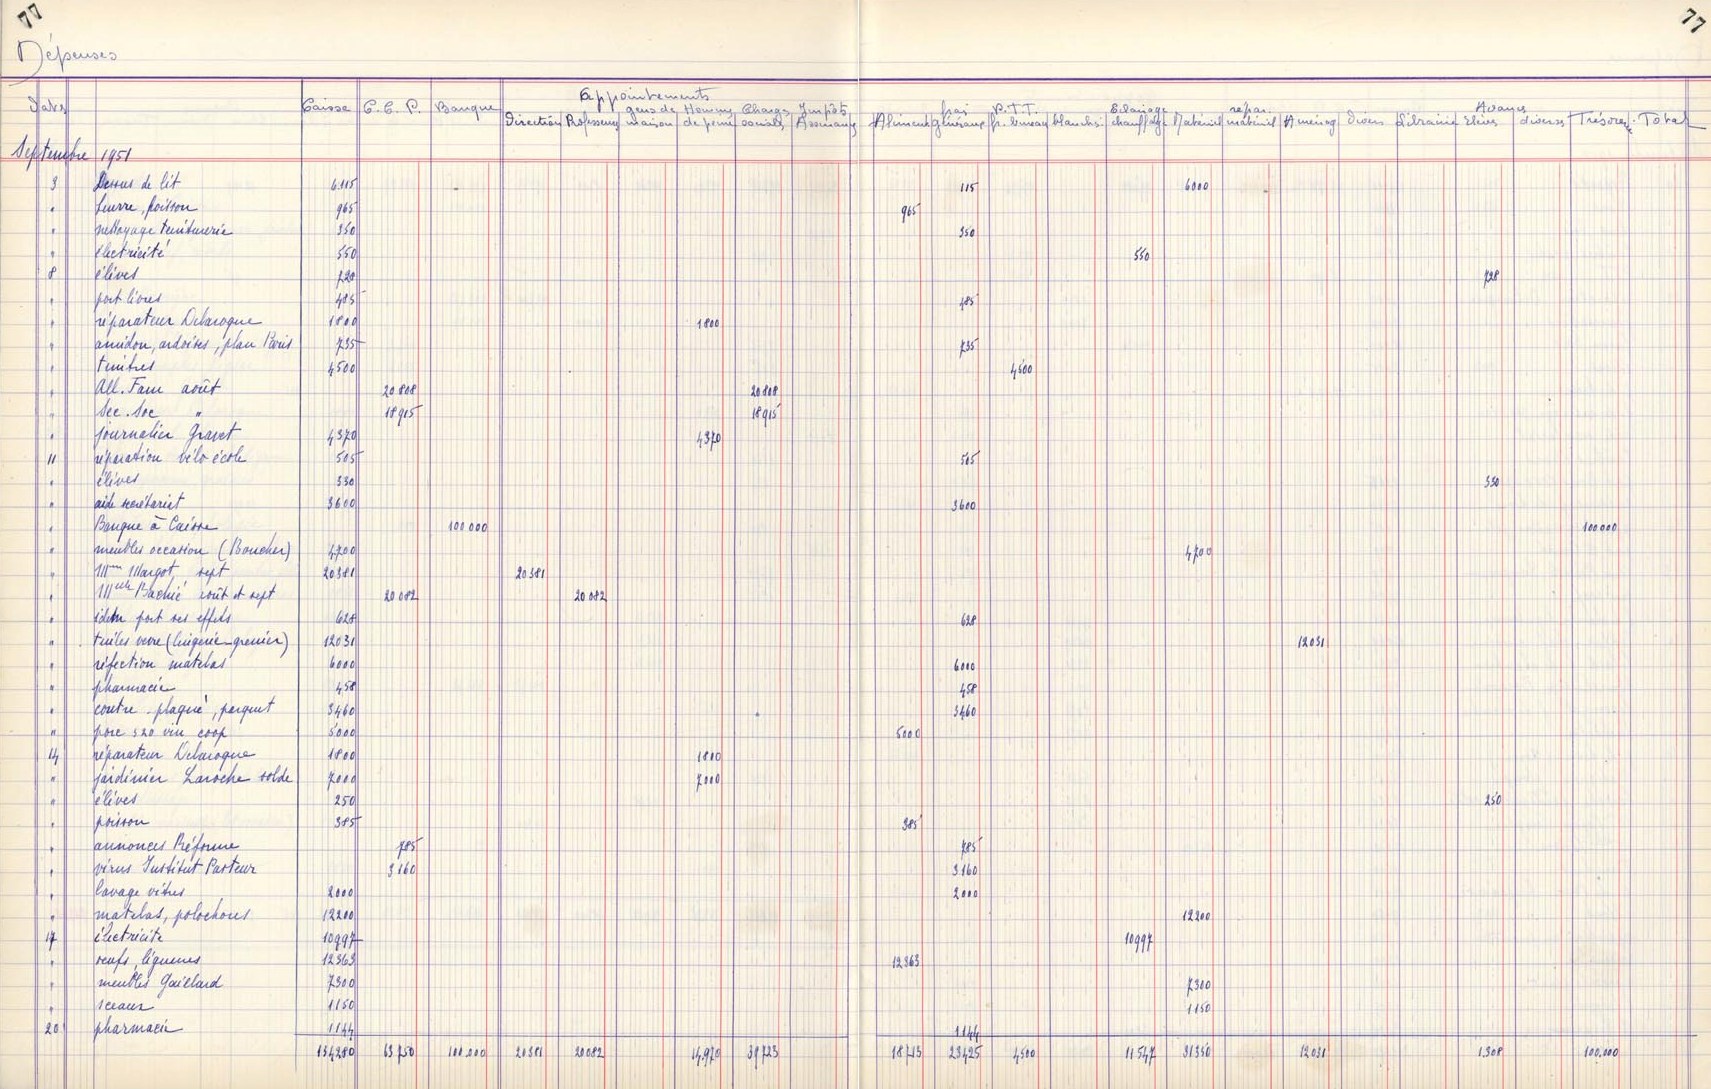 77 77
Dépenses
Appointements
Dates Caisse C. C. P. Banque Direction Professeurs gens de maison Homme de peine Charges sociales Impôts Assurances Aliment frais généraux P.T.T. fr. bureau blanchis. Eclairage chauffage Matériel répar. matériel Aménag divers Librairie Avances élèves diverses Trésorerie Total
Septembre 1951
3 Dessus de lit 6115 115 6000
" beurre, poisson 965 965
" nettoyage teinturerie 350 350
" électricité 550 550
8 élèves 728 728
" port livres 485 485
" réparateur Delarogue 1800 1800
" amidon, ardoises, plan Paris 735 735
" timbres 4500 4500
" All. Fam août 20 808 20 808
" Sec. Soc " 18 915 18 915
" journalier Gravet 4370 4370
11 réparation vélo école 505 505
" élèves 330 330
" aide secrétariat 3600 3600
" Banque à Caisse 100 000 100 000
" meubles occasion (Boucher) 4700 4700
" Mme Margot sept 20381 20381
" Melle Bachié août et sept 20 082 20 082
" idem port ses effets 628 628
" tuiles verre (lingerie-grenier) 12031 12031
" réfection matelas 6000 6000
" pharmacie 458 458
" contre-plaqué, parquet 3460 3460
" porc 520 vin coop 5000 5000
14 réparateur Delarogue 1800 1800
" jardinier Laroche solde 7000 7000
" élèves 250 250
" poisson 385 385
" annonces Réforme 785 785
" virus Institut Pasteur 3160 3160
" lavage vitres 2000 2000
" matelas, polochons 12200 12200
17 électricité 10997 10997
" oeufs, légumes 12363 12363
" meubles Gaillard 7300 7300
" sceaux 1150 1150
20 pharmacie 1144 1144
134280 63750 100.000 20381 20082 14,970 39723 18713 23425 4500 11547 31350 12031 1.308 100,000